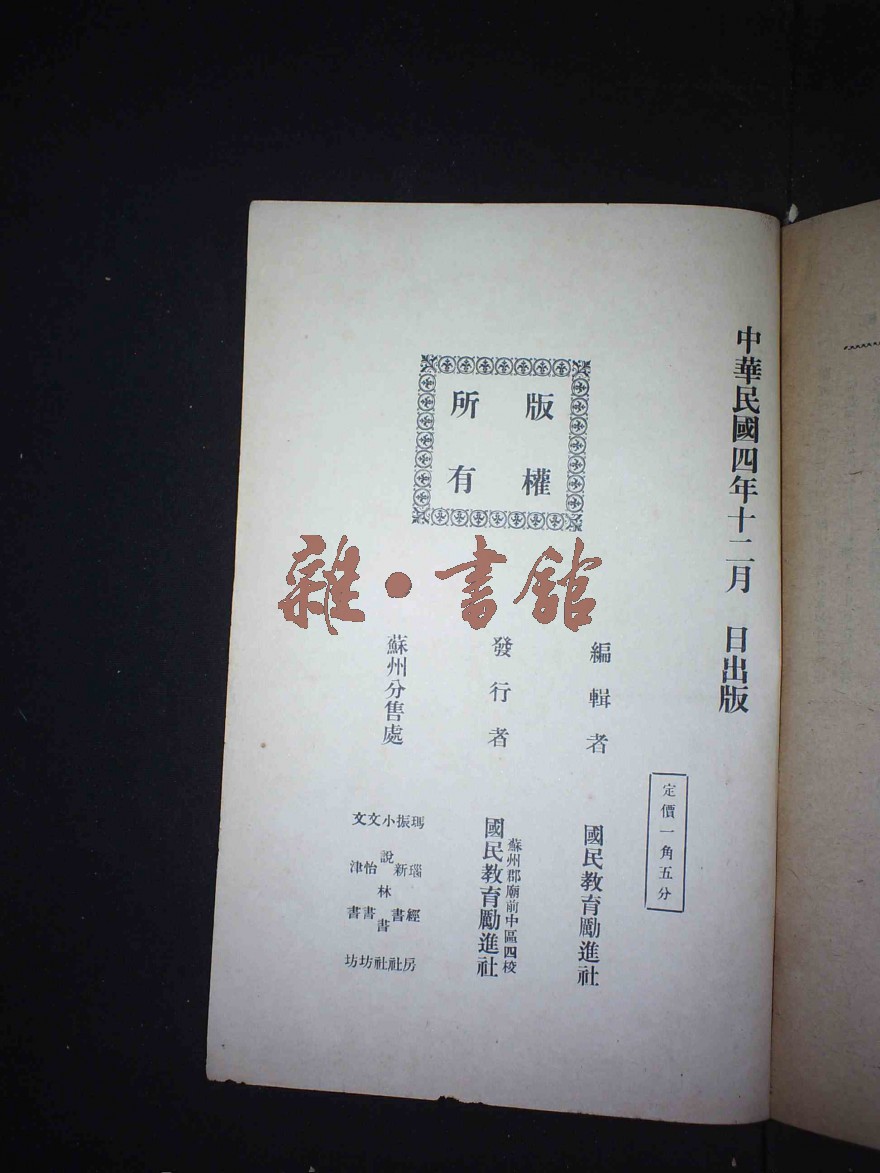 中華民國四年十二月　日出版
定價一角五分
版權
所有
編輯者　國民教育勵進社
蘇州郡廟前中區四校
發行者　國民教育勵進社
蘇州分售處
瑪瑙經房
振新書社
小說林書社
文怡書坊
文津書坊
雜·書館